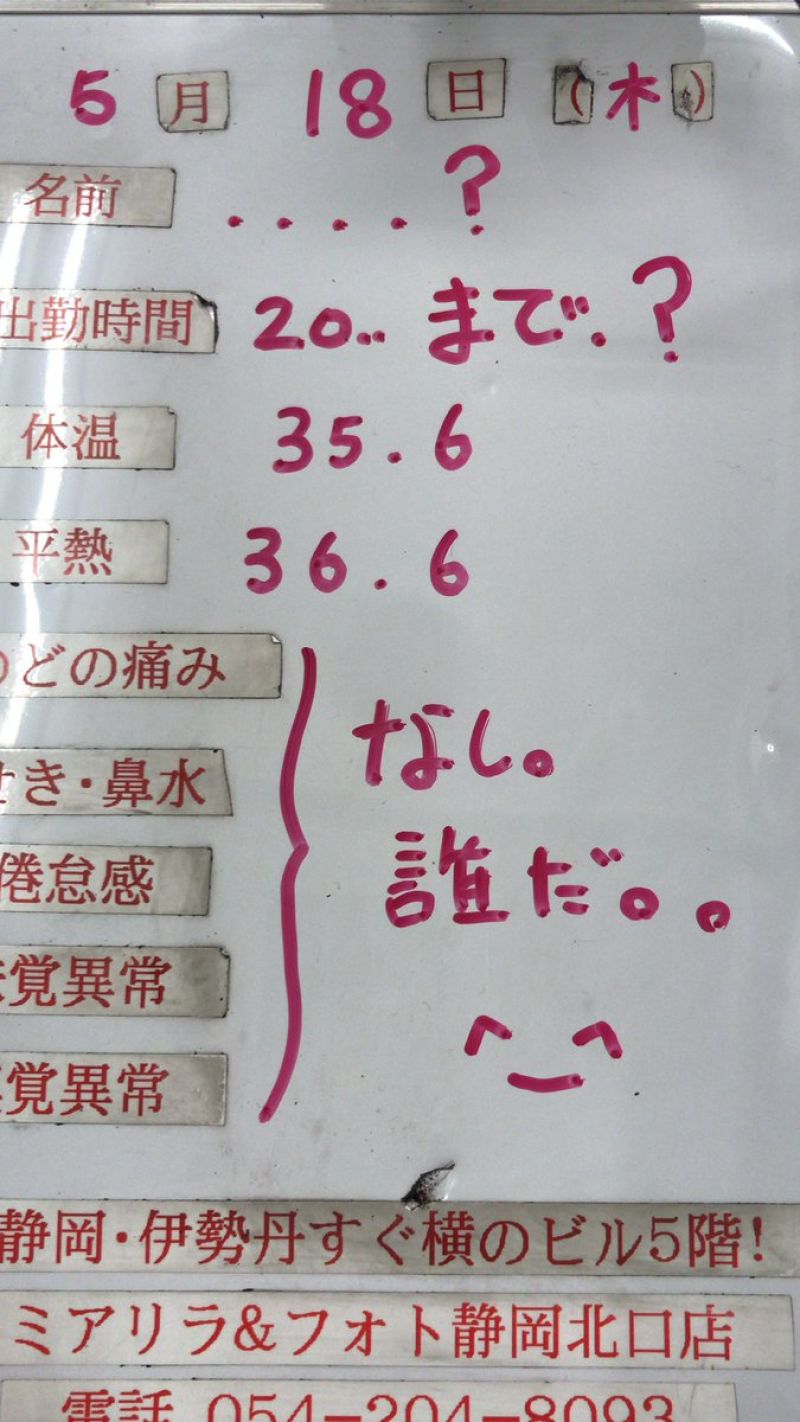 5月 18日 (木)
名前 ....?
出勤時間 20.. まで.?
体温 35.6
平熱 36.6
のどの痛み
せき・鼻水 なし。
倦怠感 誰だ。。
覚異常
覚異常
静岡・伊勢丹すぐ横のビル5階!
ミアリラ&フォト静岡北口店
電話 054-204-8093